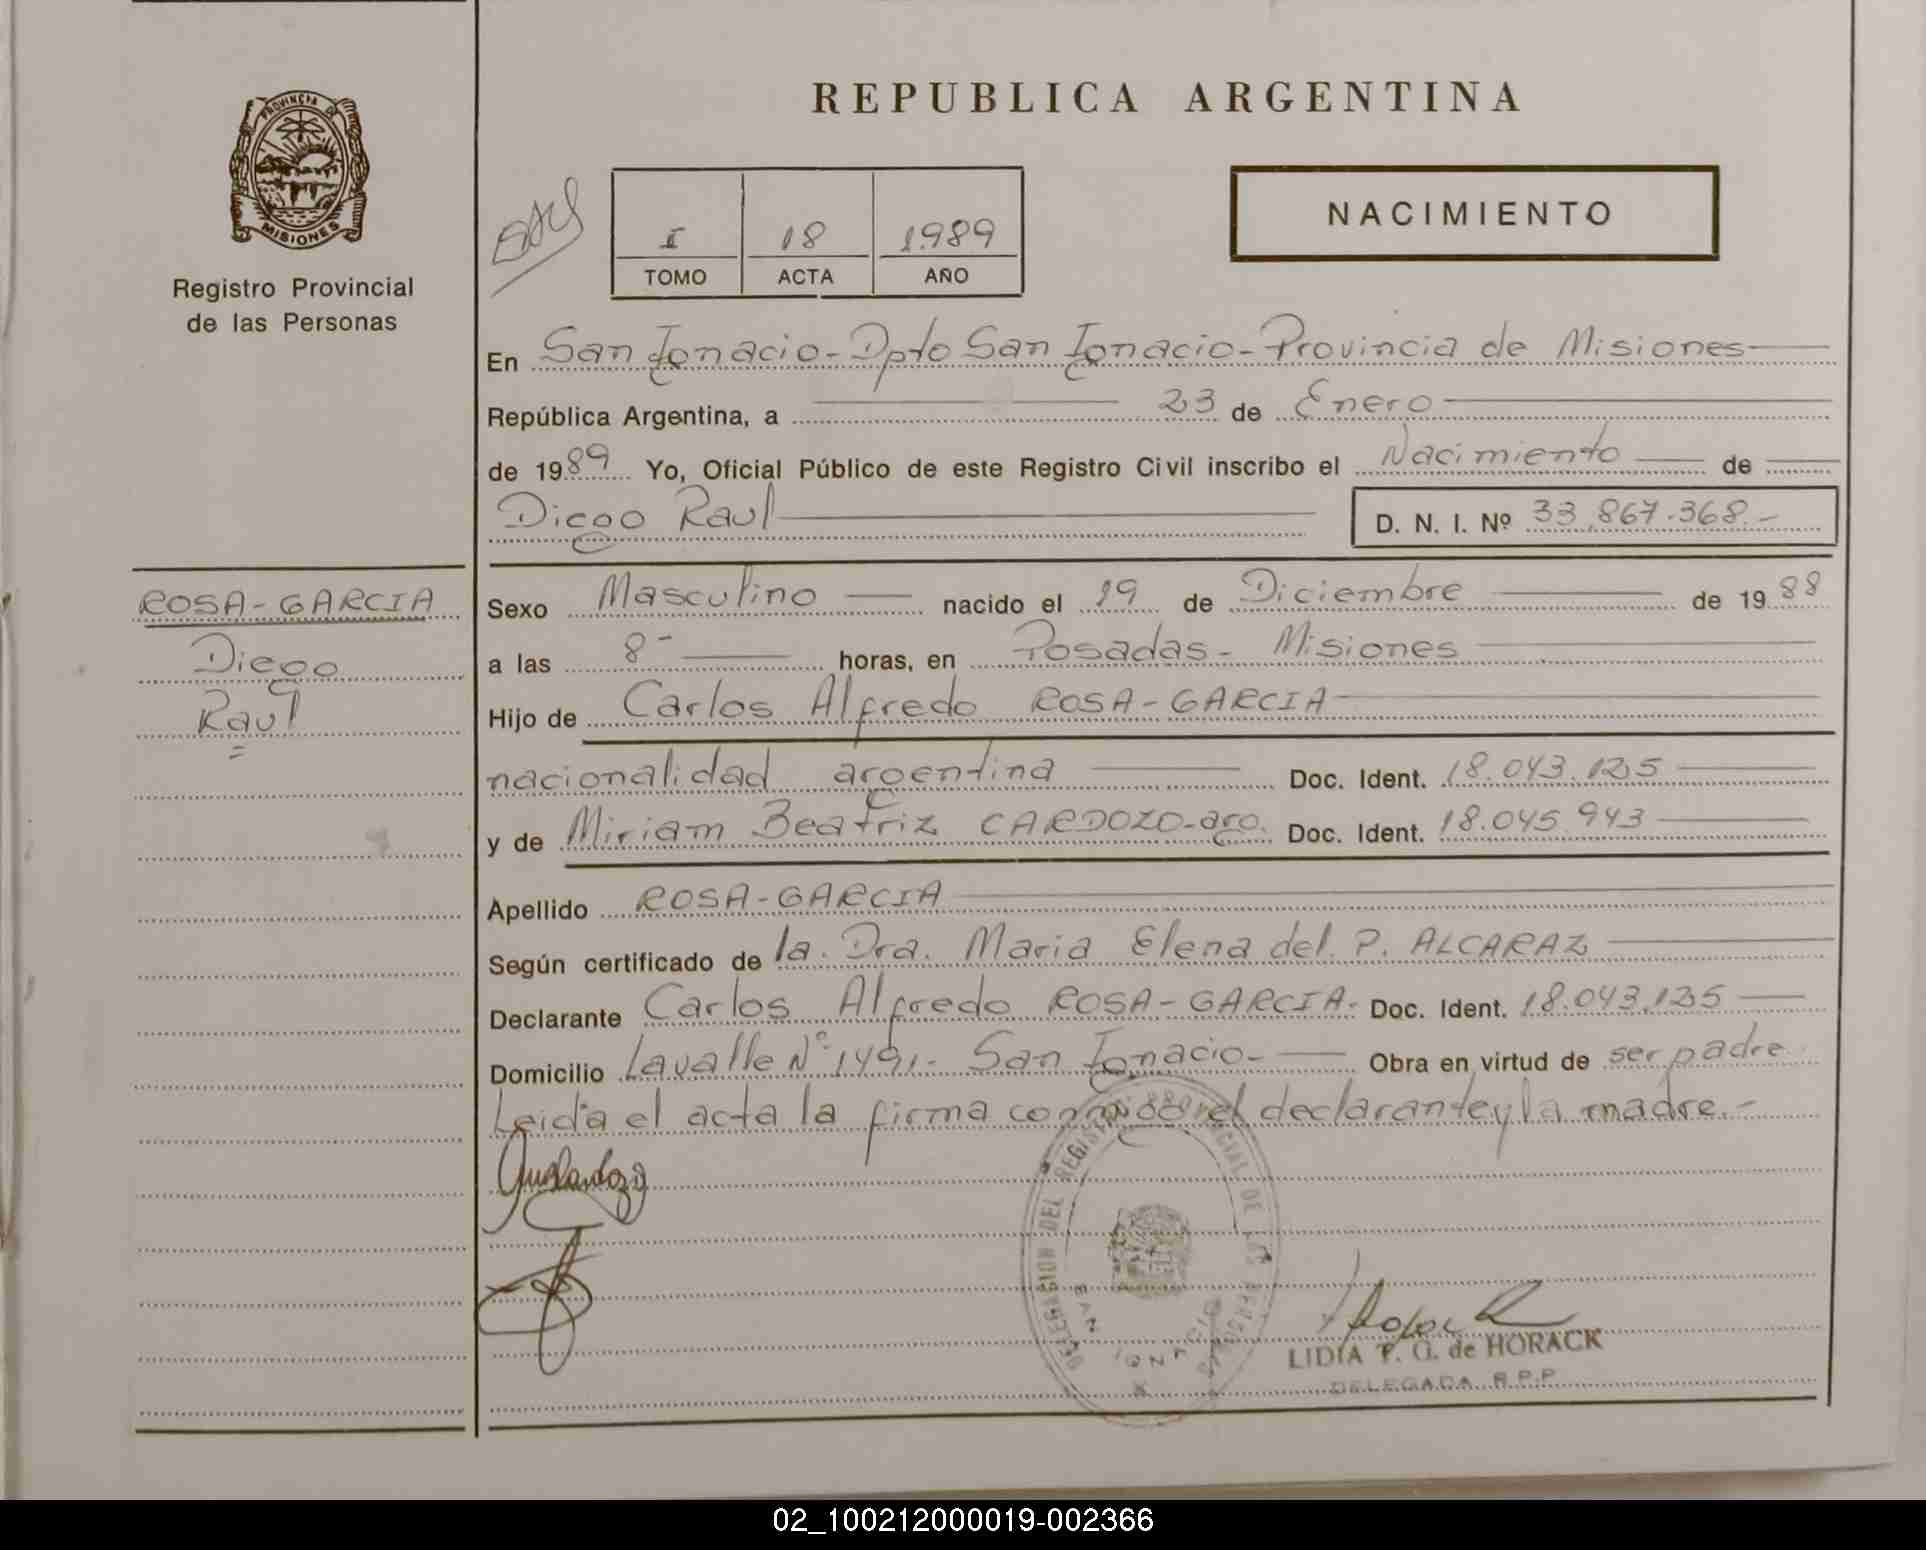 PROVINCIA DE
MISIONES
Registro Provincial
de las Personas
REPUBLICA ARGENTINA
I 18 1989
TOMO ACTA AÑO
NACIMIENTO
En San Ignacio - Dpto San Ignacio - Provincia de Misiones
República Argentina, a 23 de Enero
de 1989 Yo, Oficial Público de este Registro Civil inscribo el Nacimiento de
Diego Raul D. N. I. Nº 33.867.368.-
ROSA-GARCIA
Diego
Raul
Sexo Masculino nacido el 19 de Diciembre de 1988
a las 8- horas, en Posadas - Misiones
Hijo de Carlos Alfredo ROSA-GARCIA
nacionalidad argentina Doc. Ident. 18.043.125
y de Miriam Beatriz CARDOZO-arg. Doc. Ident. 18.045.943
Apellido ROSA-GARCIA
Según certificado de la. Dra. Maria Elena del. P. ALCARAZ
Declarante Carlos Alfredo ROSA-GARCIA- Doc. Ident. 18.043.125
Domicilio Lavalle Nº 1491- San Ignacio- Obra en virtud de ser padre
Leida el acta la firma conmigo el declarante y la madre.-
DELEGASION DEL REGISTRO PROVINCIAL DE LAS PERSONAS
SAN IGNACIO
LIDIA T. G. de HORACK
DELEGADA R.P.P.
02_100212000019-002366